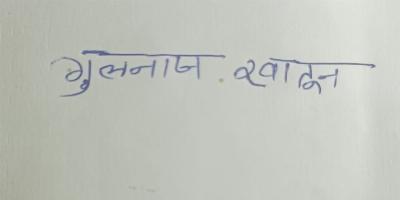 गुलनाज खातून